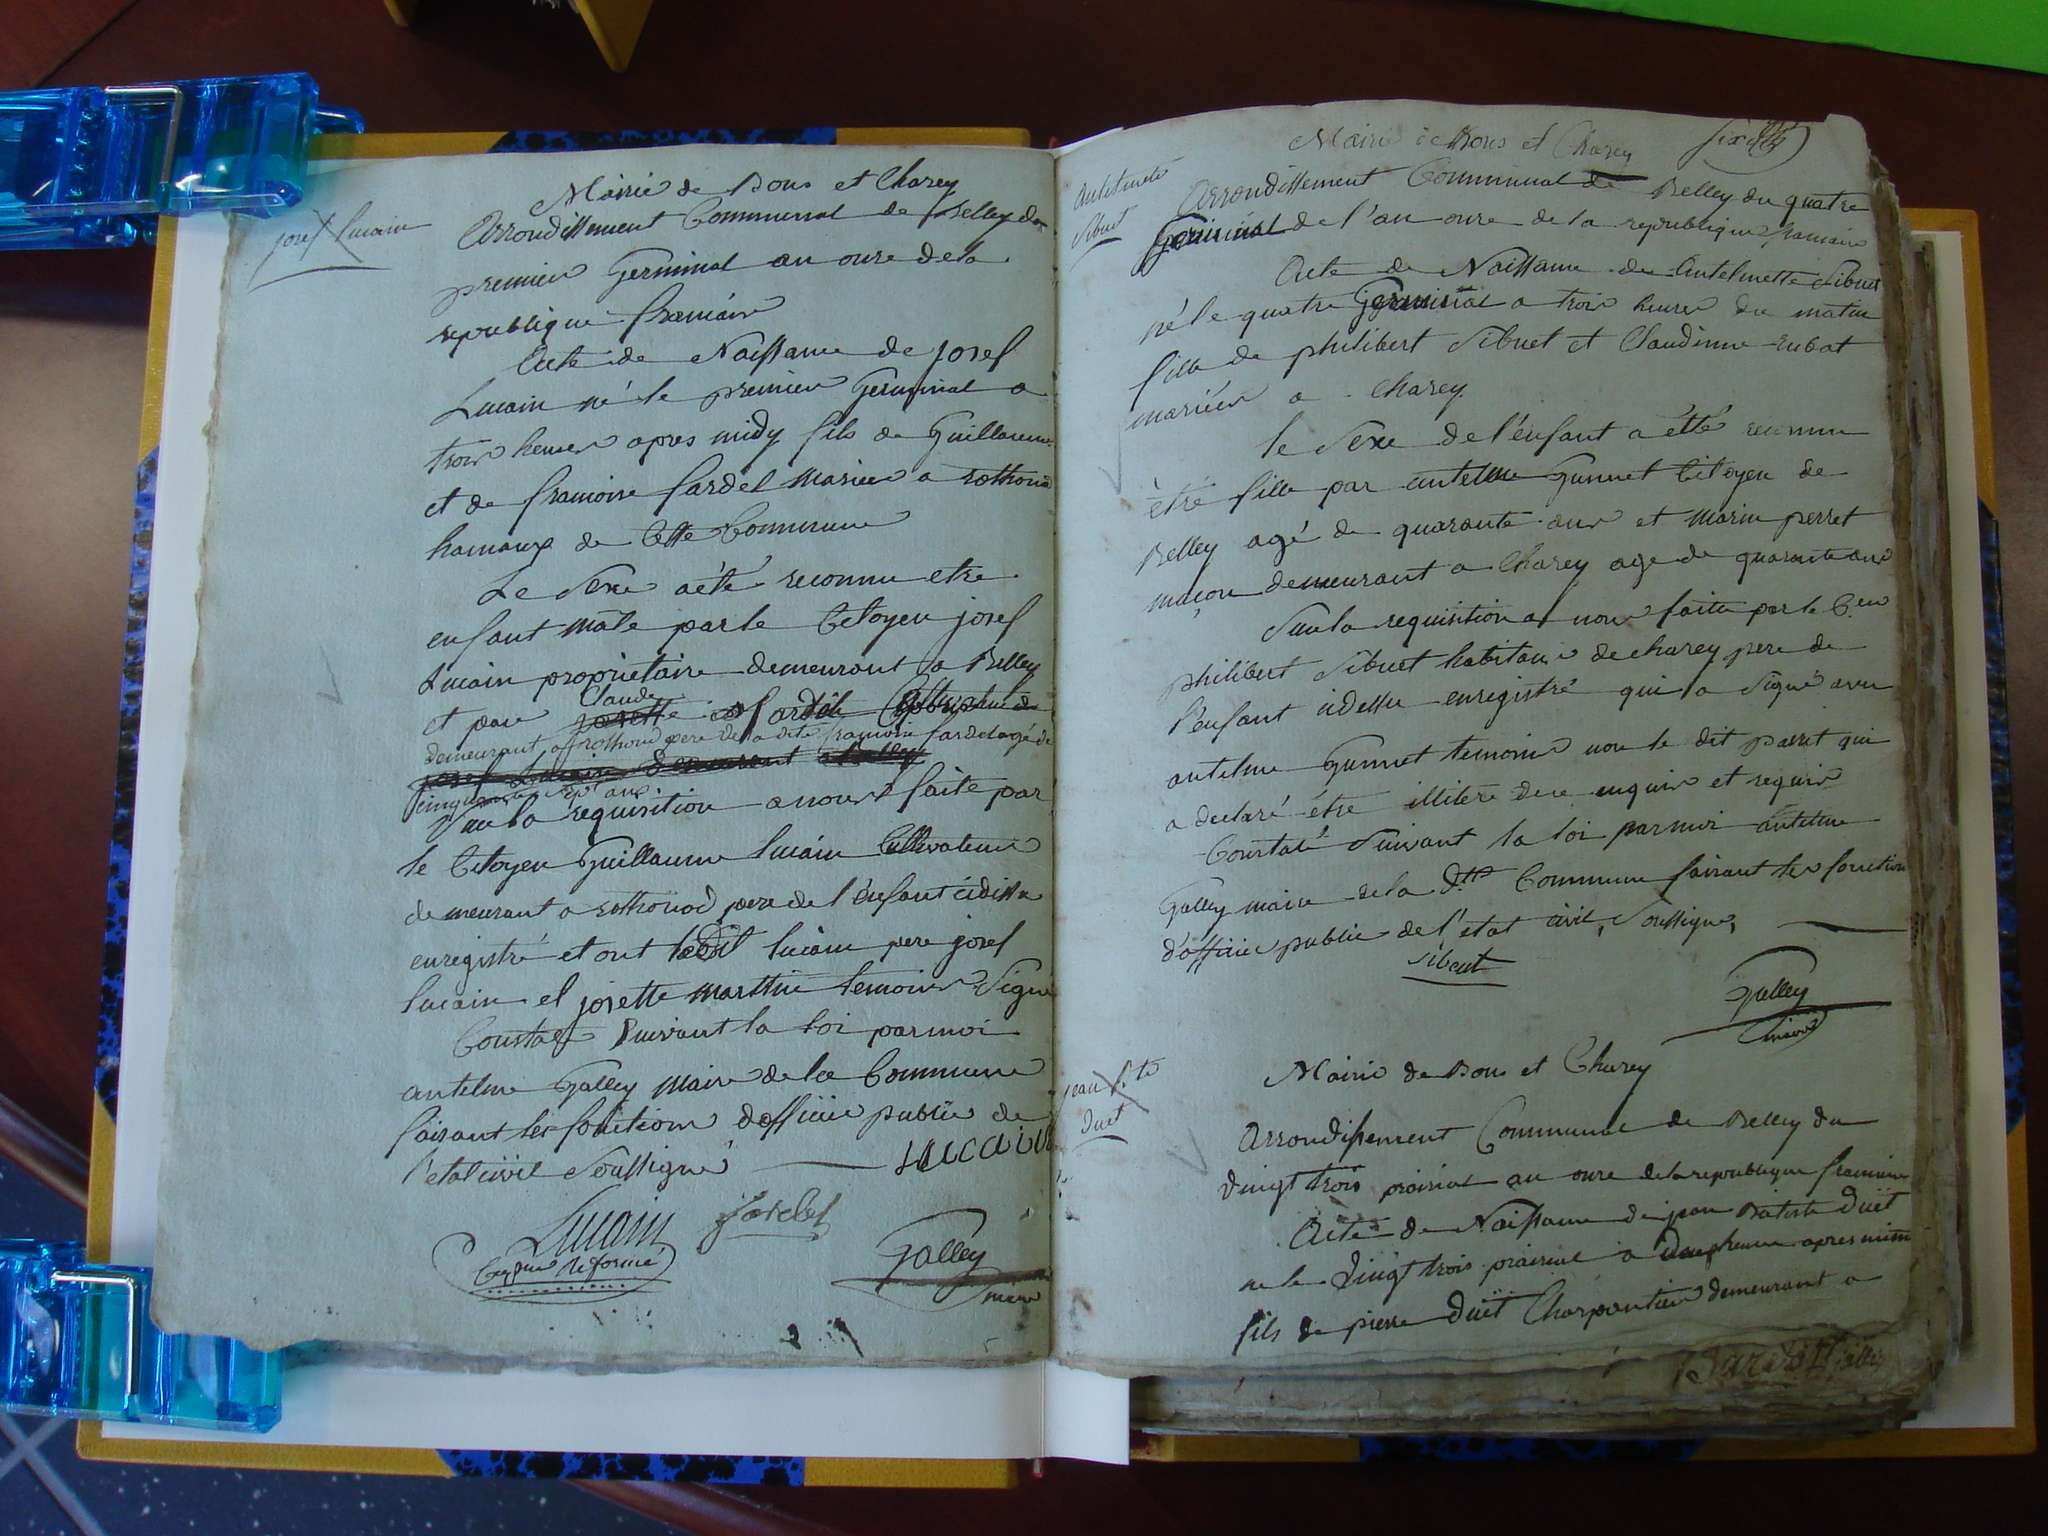 Mairie de Bons et Charey
josef lucain
Arrondissement Communal de Belley du
premier Germinal an onze de la
republique francaise
Acte de Naissance de josef
Lucain né le premier Germinal a
trois heures apres midy fils de Guillaume
et de francoise fardel mariés a rothonod
hamaux de Cette Commune
Le sexe a été reconnu etre
enfant mâle par le Citoyen josef
Lucain proprietaire demeurant a Belley
et par Claude fardel
demeurant a rothonod pere de la dite francoise fardel agé de
cinquante sept ans
Sur la requisition a nous faite par
le Citoyen Guillaume lucain Cultivateur
demeurant a rothonod pere de l'enfant cidessu
enregistré et ont ledit lucain pere josef
lucain et josette marthe temoins Signé
Constaté Suivant la loi par moi
antelme Galley maire de la Commune
faisant les fonctions d'officier public de
l'etat civil Soussigné
Lucain
Lucain
fardel
reformé
Galley
maire
Mairie de Bons et Charey
antelmette
Sibuet
Arrondissement Communal de Belley du quatre
Germinal de l'an onze de la republique francaise
Acte de Naissance de antelmette Sibuet
né le quatre Germinal a trois heures du matin
fille de philibert Sibuet et Claudinne rubat
mariés a Charey
le Sexe de l'enfant a été reconnu
être fille par antelme Gunnet Citoyen de
Belley agé de quarante ans et marin perret
maçon demeurant a Charey agé de quarante ans
Sur la requisition a nous faitte par le C.en
philibert Sibuet habitant de charey pere de
l'enfant cidessu enregistré qui a signé avec
antelme Gunnet temoins non le dit perret qui
a declaré être illiteré de ce enquis et requis
Constaté Suivant la loi par moi antelme
Galley maire de la d.tte Commune faisant les fonction
d'officier public de l'état civil, Soussigné,
Sibuet
Galley
maire
Mairie de Bons et Charey
jean b.te
Duet
Arrondissement Communal de Belley du
vingt trois prairial an onze de la republique francaise
Acte de Naissance de jean Batiste Duet
né le vingt trois prairial a heure apres midi
fils de pierre Duet Charpentier demeurant a